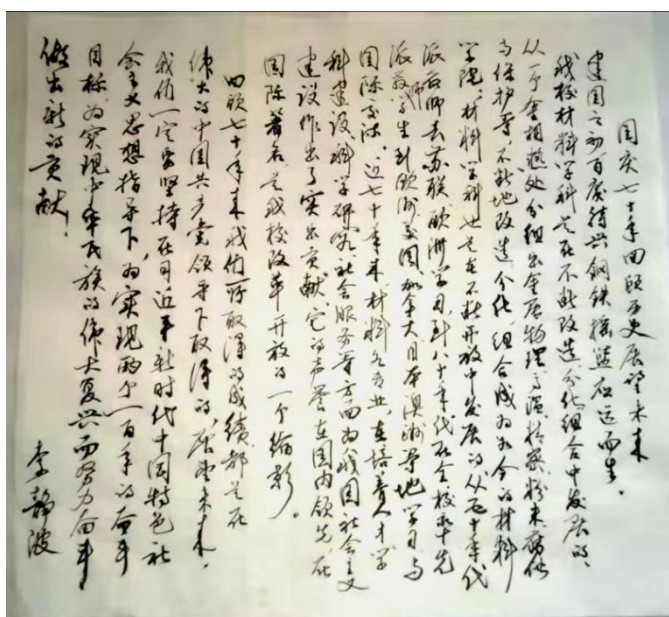 国庆七十年回顾历史展望未来
建国之初百废待兴钢铁摇篮应运而生。
我校材料学科是在不断改造分化组合中发展的、
从一个金相热处分组出金属物理高温精密粉末腐蚀
与保护等，不断地改造、分化、组合成为如今的材料
学院。材料学科也是在不断开放中发展的从五十年代
派教师去苏联欧洲学习，到八十年代在全校率先
派师生到欧洲美国加拿大日本澳洲等地学习与
国际交流。近七十年来材料各专业，在培养人才学
科建设科学研究、社会服务等方面为我国社会主义
建设作出了突出贡献，它的声誉在国内领先，在
国际著名是我校改革开放的一个缩影。
回顾七十年来我们所取得的成绩都是在
伟大的中国共产党领导下取得的，展望未来，
我们一定要坚持在习近平新时代中国特色社
会主义思想指导下，为实现两个一百年的奋斗
目标，为实现中华民族的伟大复兴而努力奋斗
做出新的贡献。
李静波